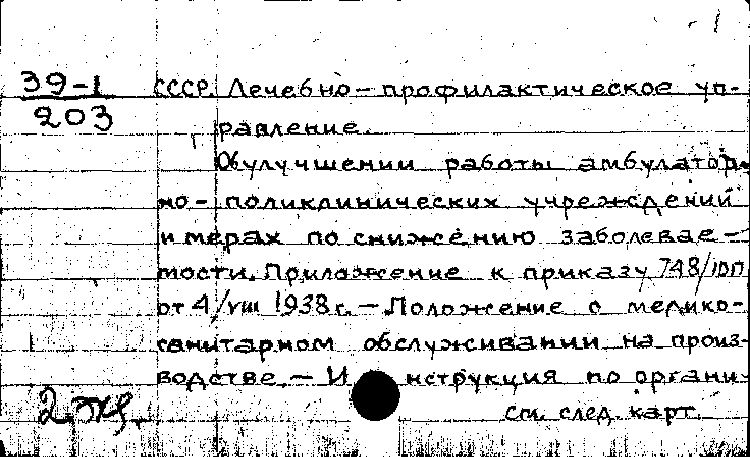 1
39-1
203
СССР. Лечебно-профилактическое уп-
равление.
Об улучшении работы амбулатор-
но-поликлинических учреждений
и мерах по снижению заболевае-
мости. Приложение к приказу 748/
от 4/VIII 1938 г. — Положение о медико-
санитарном обслуживании на произ-
водстве. — Инструкция по органи-
2 экз.
см. след. карт.